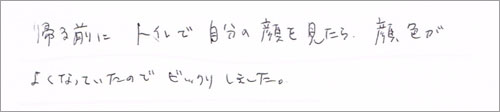 帰る前に トイレで 自分の顔を見たら、顔色が
よくなっていたので ビックリしました。